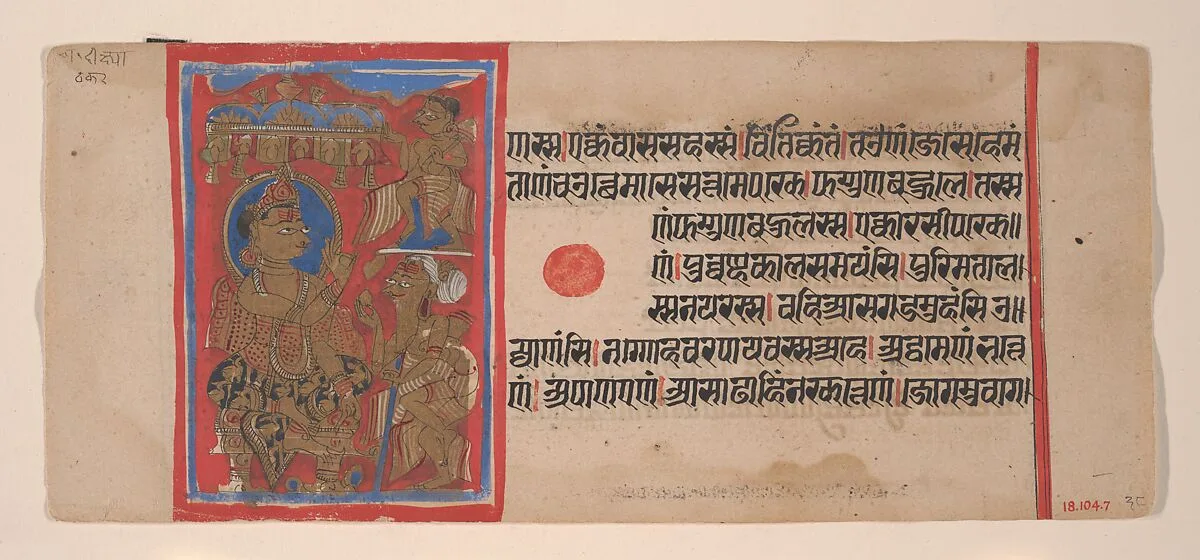 णस्स।एक्कंवाससहस्सं।वितिक्कंतं।तउणंजेसेहेमं
ताणंचउत्थेमासेसत्तमेपरके।फग्गुणबहुले।तस्स
णंफग्गुणबहुलस्स।एक्कारसीपरके॥
णं।पुव्वण्हकालसमयंसि।पुरिमताल
स्सनयरस्स।बहिआसगडमुहंसिउ॥
ज्जाणंसि।नग्गोहवरपायवस्सअहे।अट्ठमेणंभत्ते
णं।अपाणएणं।आसाढाहिंनरकत्तेणं।जोगमुवाग
18.104.7
३८